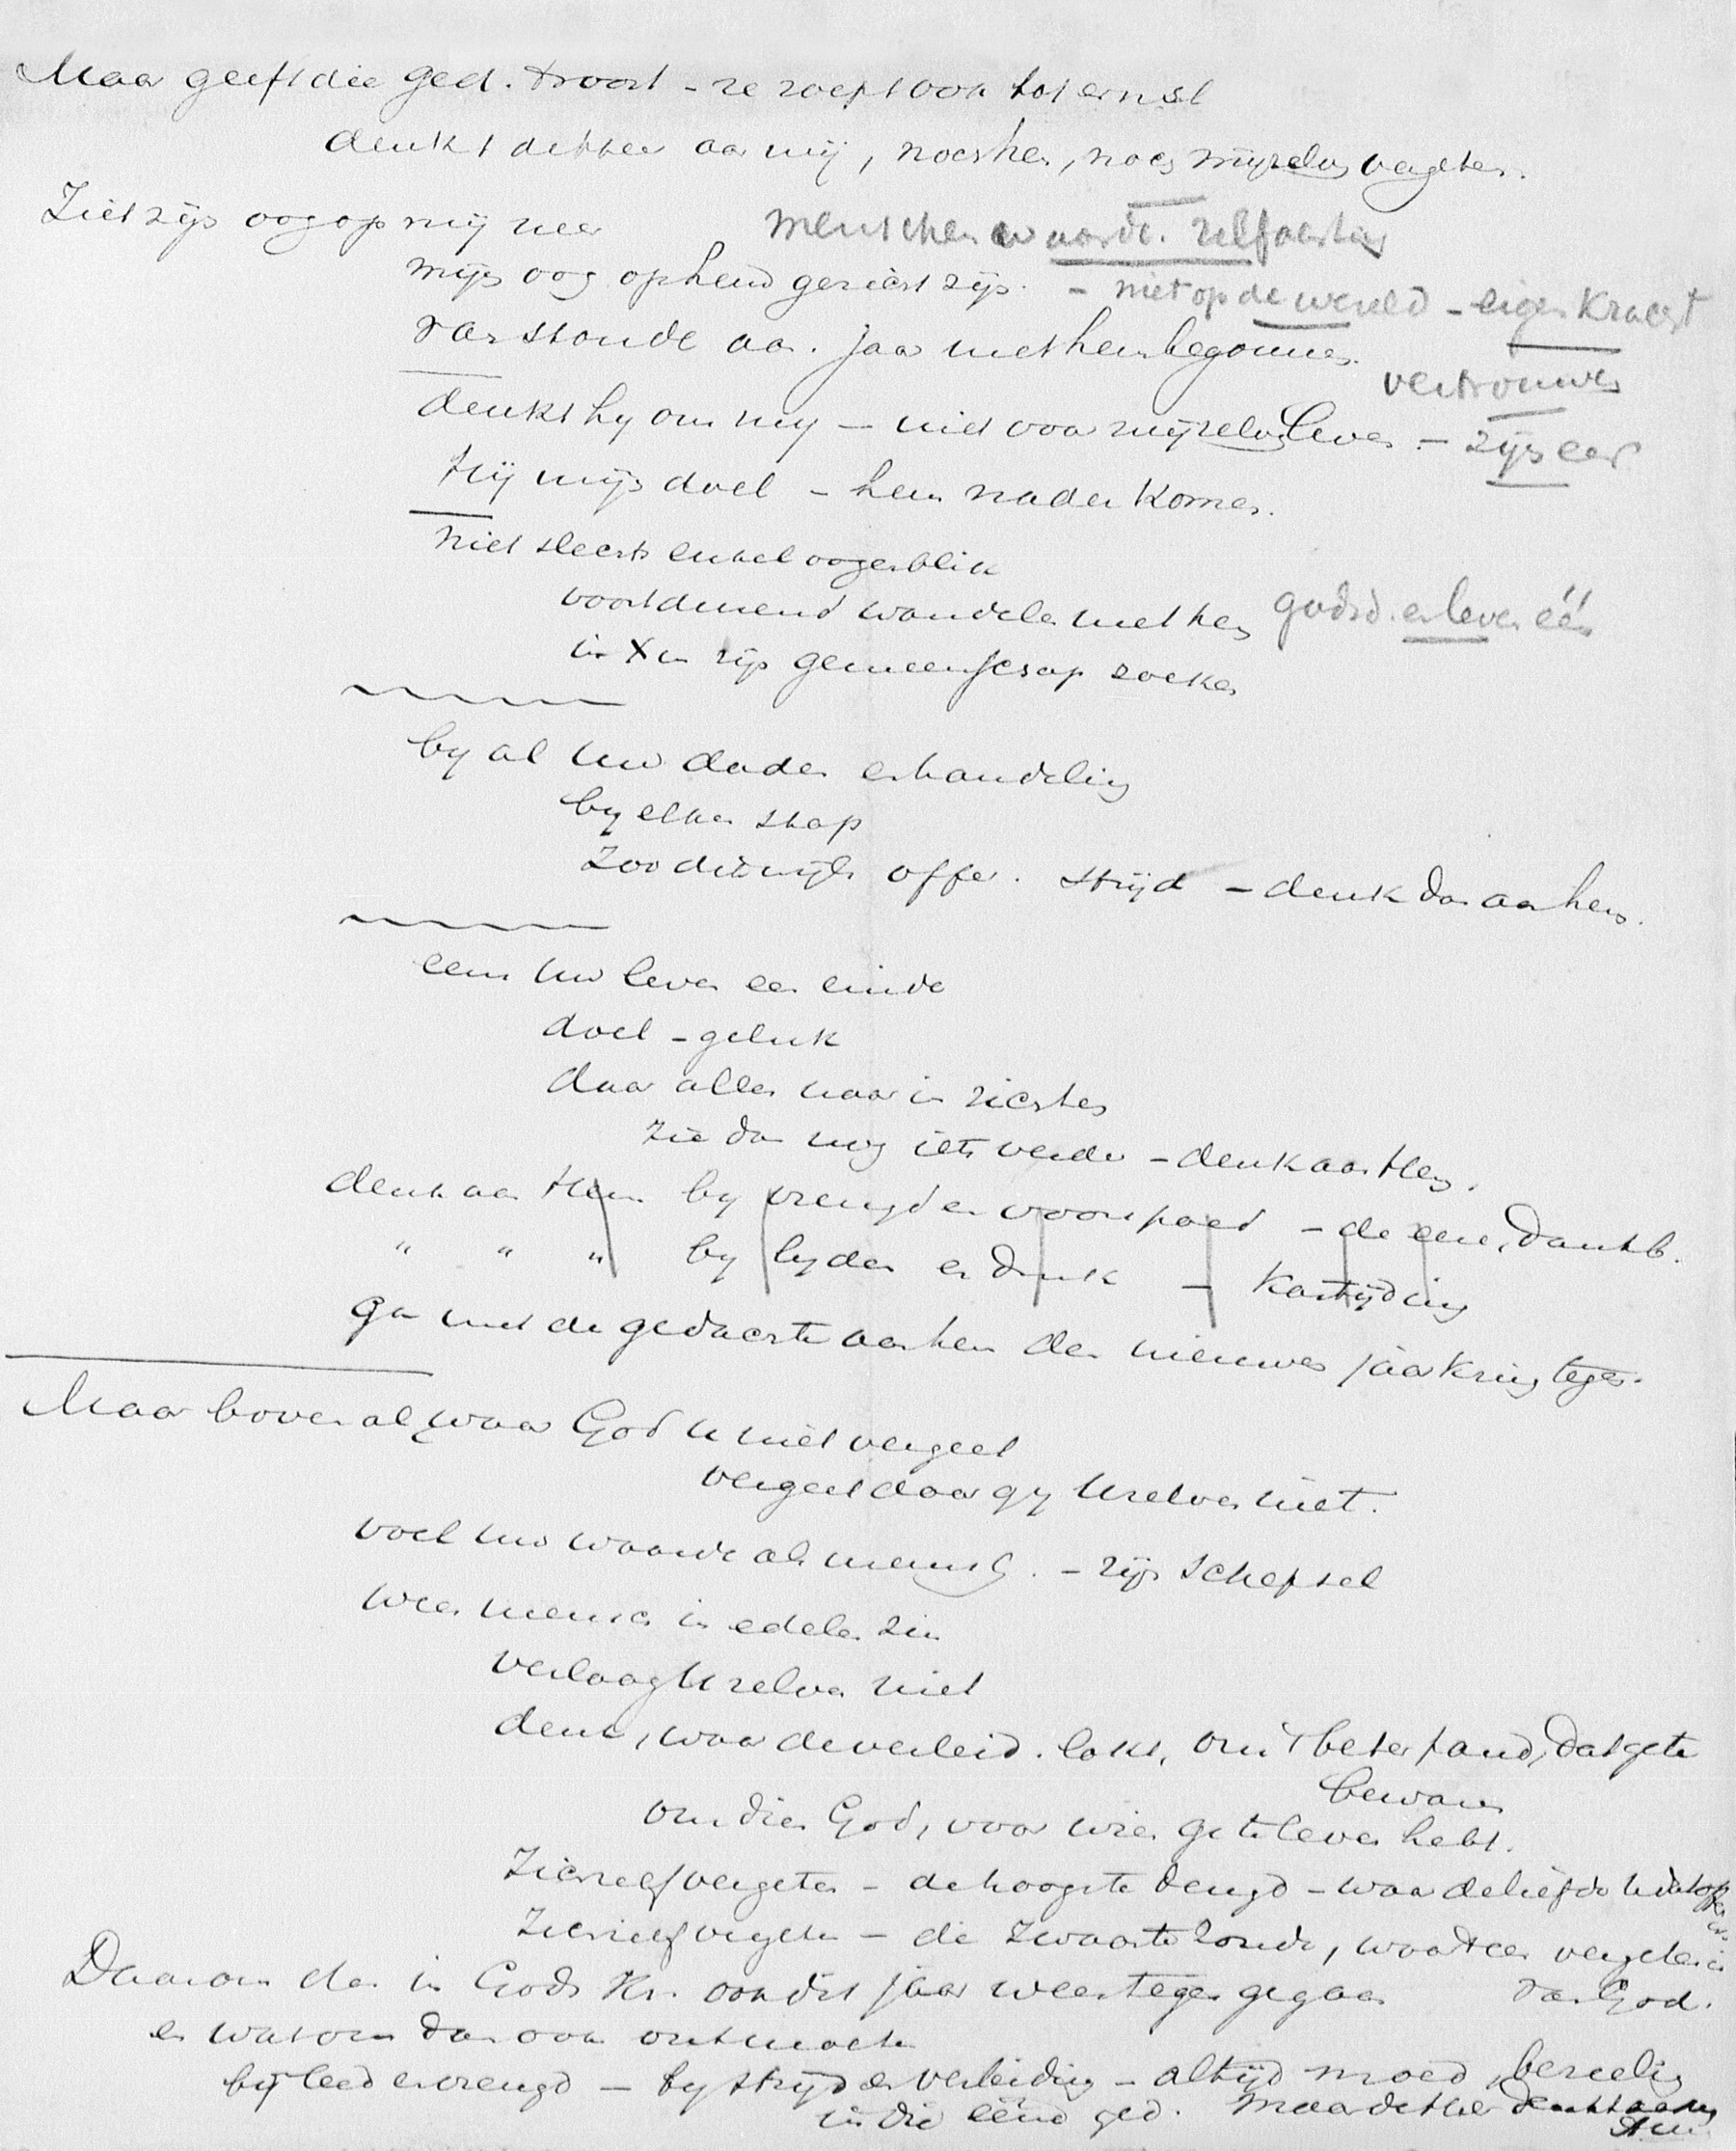 Maar geeft die ged. troost - ze roept ook tot ernst
denkt de Heer aan mij, noch hem, noch mijzelv vergeten.
Ziet zijn oog op mij neer
menschenwaarde. zelfachting
mijn oog op hem gericht zijn. - niet op de wereld - eigen kracht
van stonde aan. jaar met hem begonnen.
vertrouwen
denkt hy om my - niet voor mijzelv leven - zijn eer
Hij mijn doel - hem nader komen.
niet slechts enkel oogenblik
voortdurend wandelen met hem godsd. en leven één
in X en zijn gemeenschap zoeken
by al uw daden en handeling
by elken stap
Zoo dikwijls offer. strijd - denk dan aan hem.
eens uw leven een einde
doel - geluk
daar alles naar in richten
zie dan nog iets verder - denk aan Hem.
denk aan Hem by vreugd en voorspoed - de eere, dankb.
" " " by lyden en druk - kastijding
ga met de gedachte aan hem den nieuwen jaarkring tegen.
Maar bovenal, waar God u niet vergeet
vergeet daar gy Uzelven niet.
voel uw waarde als mensch. - zijn schepsel
wees mensch in edelen zin
verlaag Uzelven niet
denk, waar de verleid. lokt, om 't beter pand, dat ge te
bewaren
om dien God, voor wien ge te leven hebt.
Zichzelf vergeten - de hoogste deugd - waar de liefde U
Zichzelf vergeten - de zwaarste zonde, waar het een vergeten is
van God.
Daarom dan in Gods Kr. ook dit jaar weer tegen gegaan
en wat ons dan ook ontmoete
bij leed en vreugd - by strijd en verleiding - altijd moed, bezieling
in die ééne ged. Maar de Heer denkt aan my
Amen